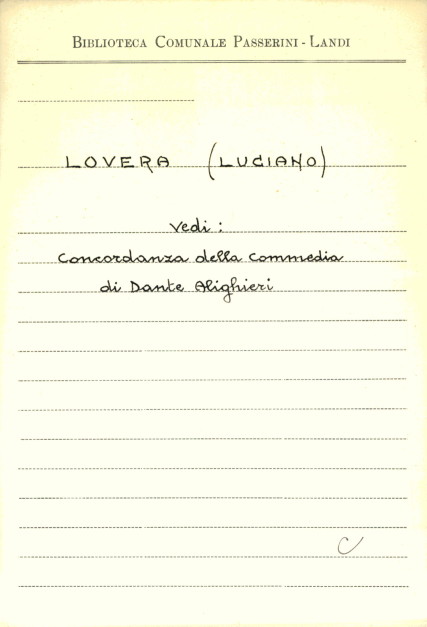 BIBLIOTECA COMUNALE PASSERINI - LANDI
LOVERA (LUCIANO)
vedi :
Concordanza della Commedia
di Dante Alighieri
C